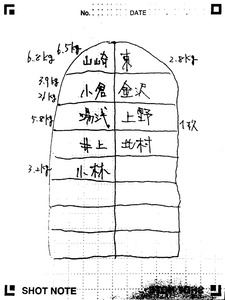 No. DATE
6.5kg
6.2kg 山崎 東 2.8kg
3.9kg 小倉 金沢
2kg
5.8kg 湯浅 上野
井上 北村
3.2kg 小林
SHOT NOTE